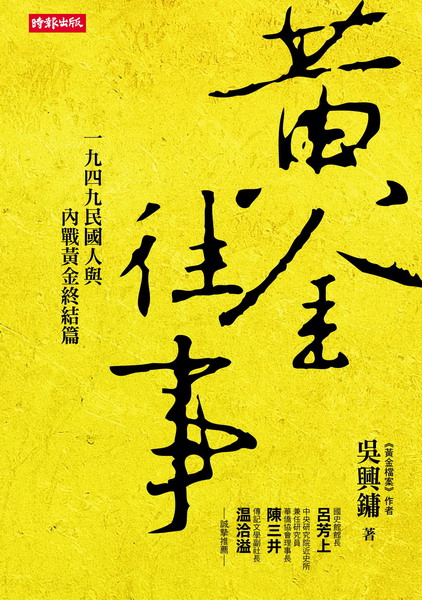 時報出版
黃金往事
一九四九民國人與
內戰黃金終結篇
《黃金檔案》作者
吳興鏞 著
國史館館長
呂芳上
中央研究院近史所
兼任研究員
華僑協會理事長
陳三井
傳記文學副社長
温洽溢
——誠摯推薦——